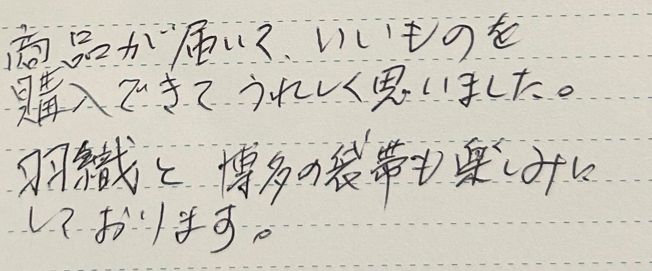 商品が届いて、いいものを
購入できてうれしく思いました。
羽織と博多の袋帯も楽しみに
しております。